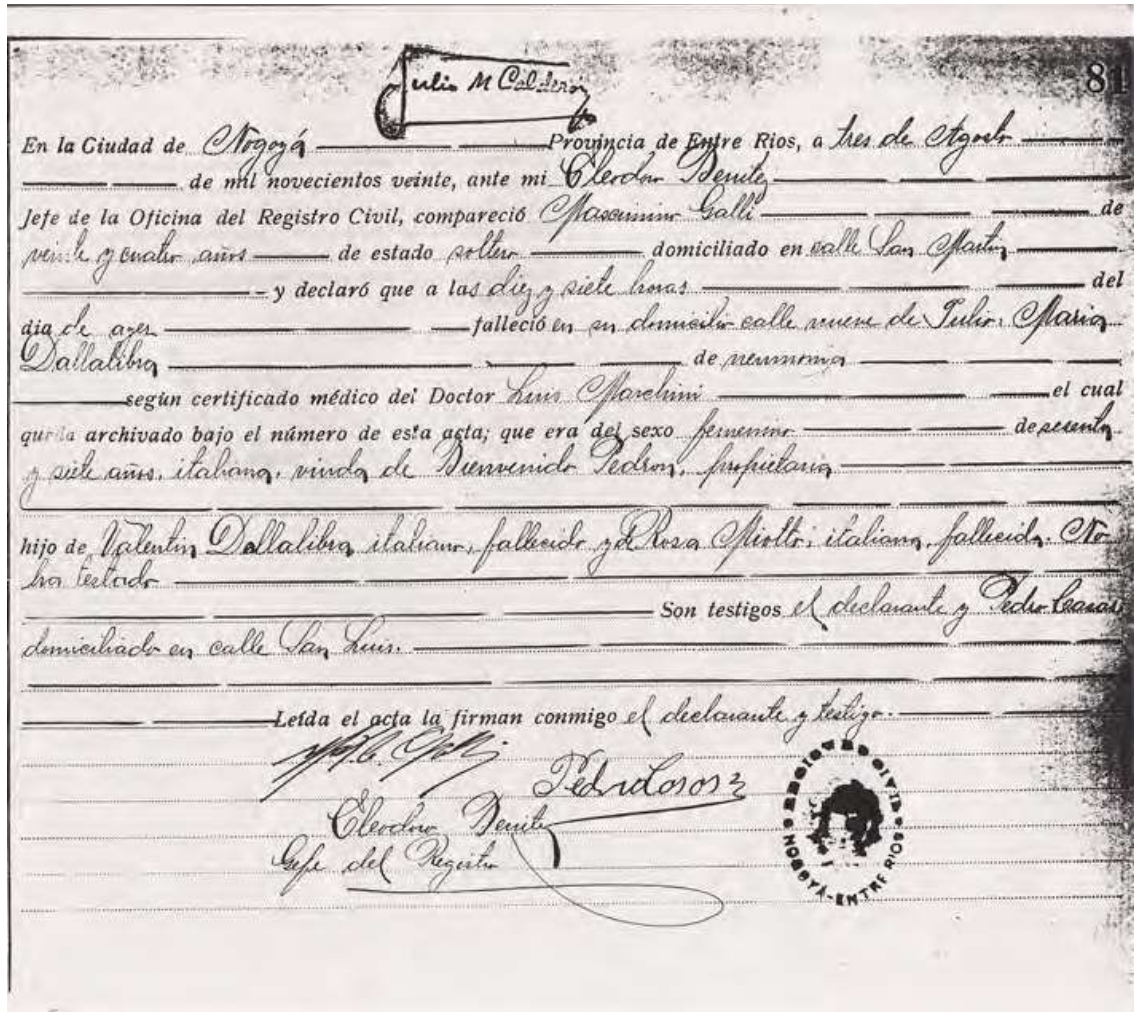 ulio M Calderón
81
En la Ciudad de Nogoyá Provincia de Entre Rios, a tres de Agosto
de mil novecientos veinte, ante mi Eleodoro Benitez
Jefe de la Oficina del Registro Civil, compareció Mascimino Galli de
veinte y cuatro años de estado soltero domiciliado en calle San Martin
y declaró que a las diez y siete horas del
dia de ayer falleció en su domicilio calle nueve de Julio, Maria
Dallalibra de neumonia
según certificado médico del Doctor Luis Marchini el cual
queda archivado bajo el número de esta acta; que era del sexo femenino de sesenta
y siete años, italiana, viuda de Bienvenido Pedron, propietaria
hijo de Valentin Dallalibra italiano, fallecido y Rosa Miotto, italiana, fallecida. No
ha testado
Son testigos el declarante y Pedro Casas
domiciliado en calle San Luis.
Leída el acta la firman conmigo el declarante y testigo.
Pedro Cosos
Eleodoro Benitez
Gefe del Registro
REGISTRO CIVIL
NOGOYÁ-ENTRE RIOS